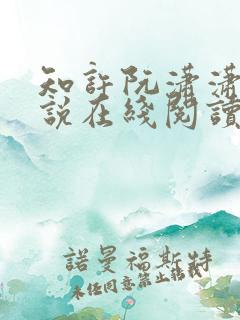 知許阮瀟瀟
說在綫閱讀
諾曼福斯特
未經同意禁止轉載